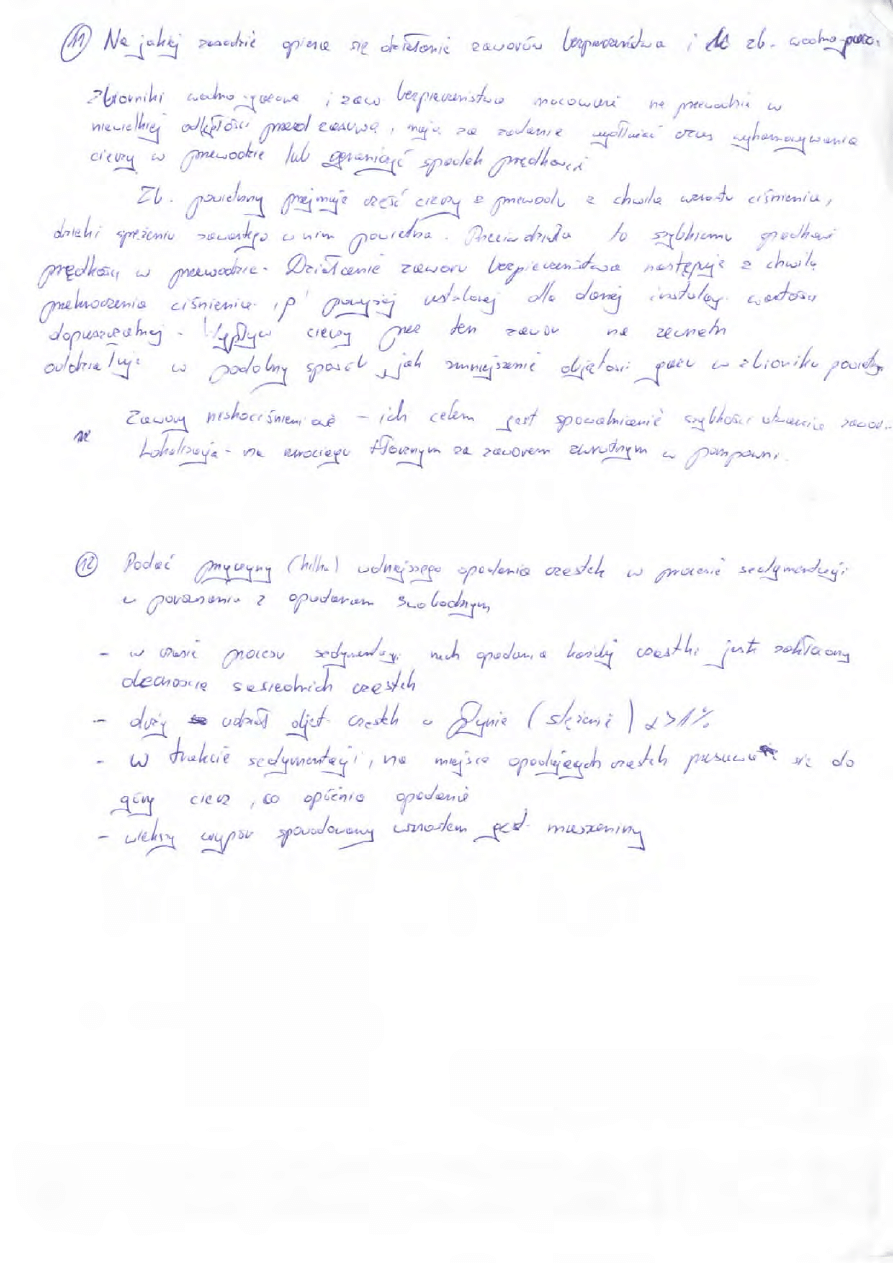 11 Na jakiej zasadzie opiera się działanie zaworów bezpieczeństwa i zb. wodno-powi.
Zbiorniki wodno-           i zaw bezpieczeństwa mocować na przewodzie w
niewielkiej odległości przed zasuwą, mają za zadanie wydłużać czas wyhamowywania
cieczy w przewodzie lub ograniczyć spadek prędkości
Zb. powietrzny przejmuje część cieczy z przewodu z chwilą wzrostu ciśnienia,
dzięki sprężeniu zawartego w nim powietrza. Przeciwdziała to szybkiemu spadkowi
prędkości w przewodzie. Działanie zaworu bezpieczeństwa następuje z chwilą
przekroczenia ciśnienia "p" powyżej ustalonej dla danej instalacj. wartości
dopuszczalnej. Wypływ cieczy prze ten zawór na zewnątrz
oddziałuje w podobny sposób, jak zmniejszenie objętości gazu w zbiorniku powietrz.
Zawory              – ich celem jest spowalnianie szybkości              zawor.
Lokalizacja - na rurociągu tłocznym za zaworem zwrotnym w pompowni.
12 Podać przyczyny (kilka) wolniejszego opadania cząstek w procesie sedymentacji
w porównaniu z opadaniem swobodnym
- w czasie procesu sedymentacji ruch opadania każdej cząstki jest zakłócony
obecnością sąsiednich cząstek
- duży udział objęt. cząstek w płynie (stężenie) α>1%
- w trakcie sedymentacji, na miejsce opadających cząstek przesuwa się do
góry ciecz, co opóźnia opadanie
- większy wypór spowodowany wzrostem gęst. mieszaniny